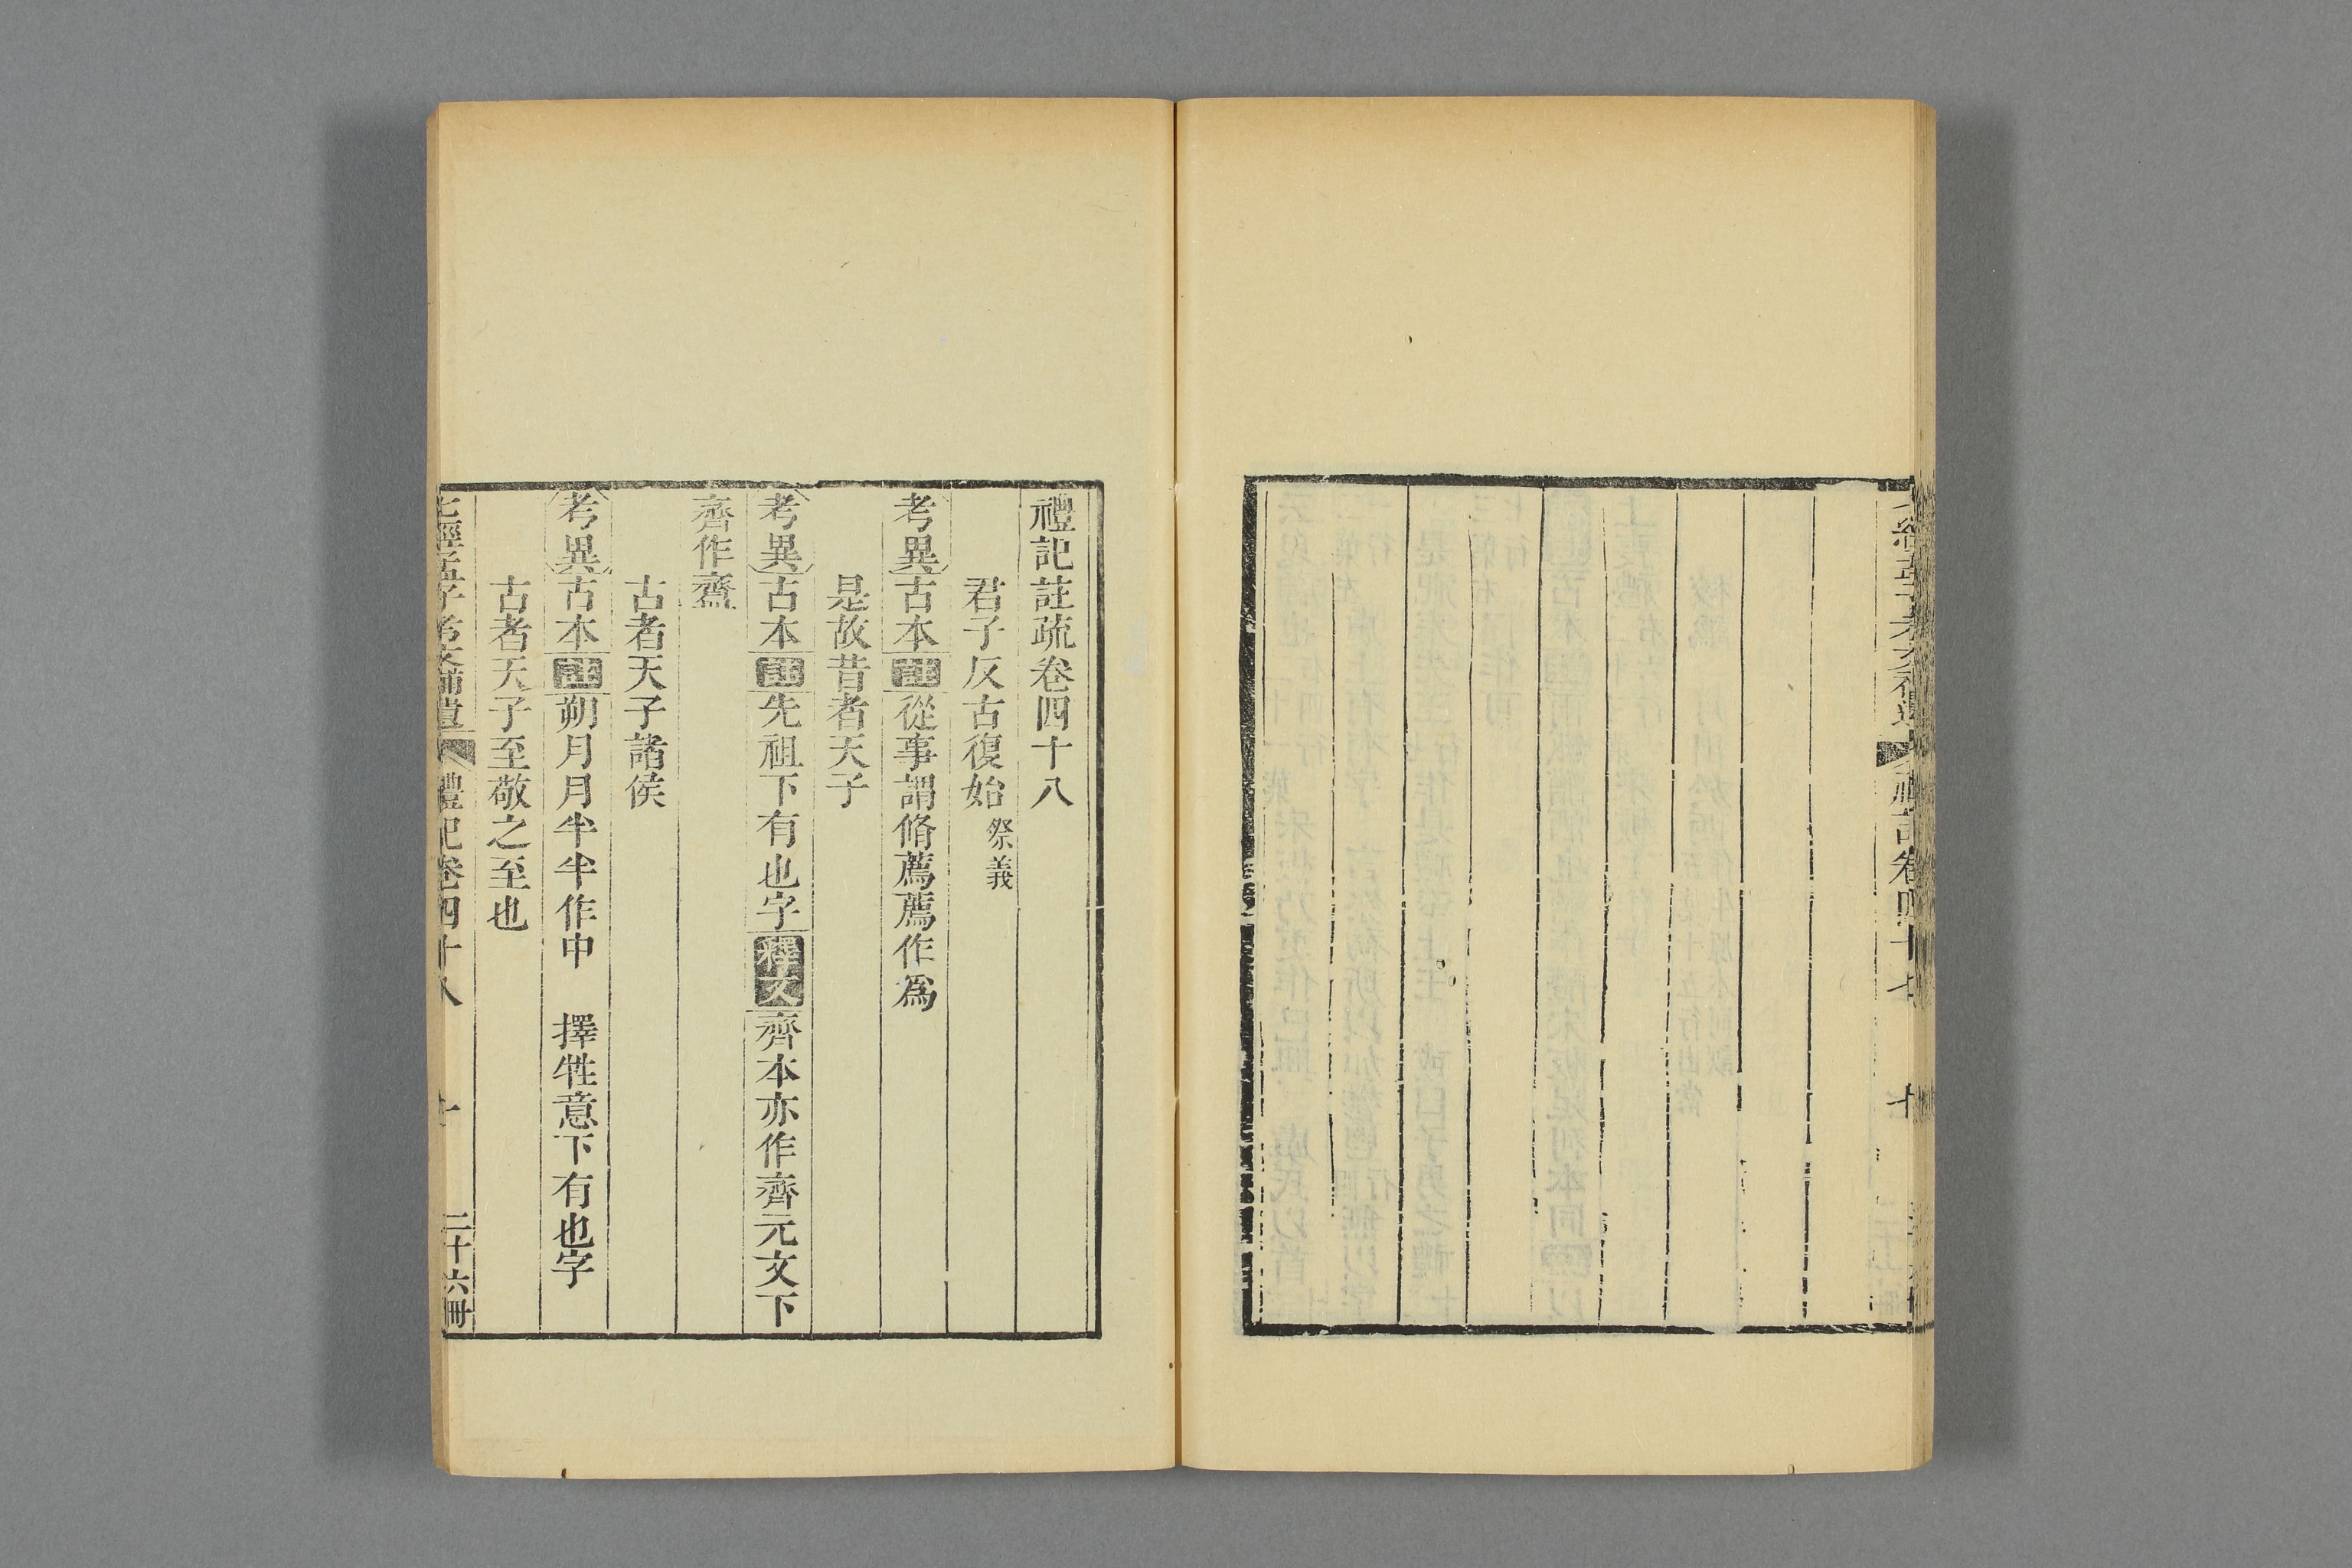 禮記卷四十七
禮記註疏卷四十八
君子反古復始祭義
考異古本註從事謂脩薦薦作爲
是故昔者天子
考異古本註先祖下有也字釋文齊本亦作齊元文下
齊作齋
古者天子諸侯
考異古本註朔月月半半作中　擇牲意下有也字
古者天子至敬之至也
七經孟子考文補遺　禮記卷四十八　二十六冊